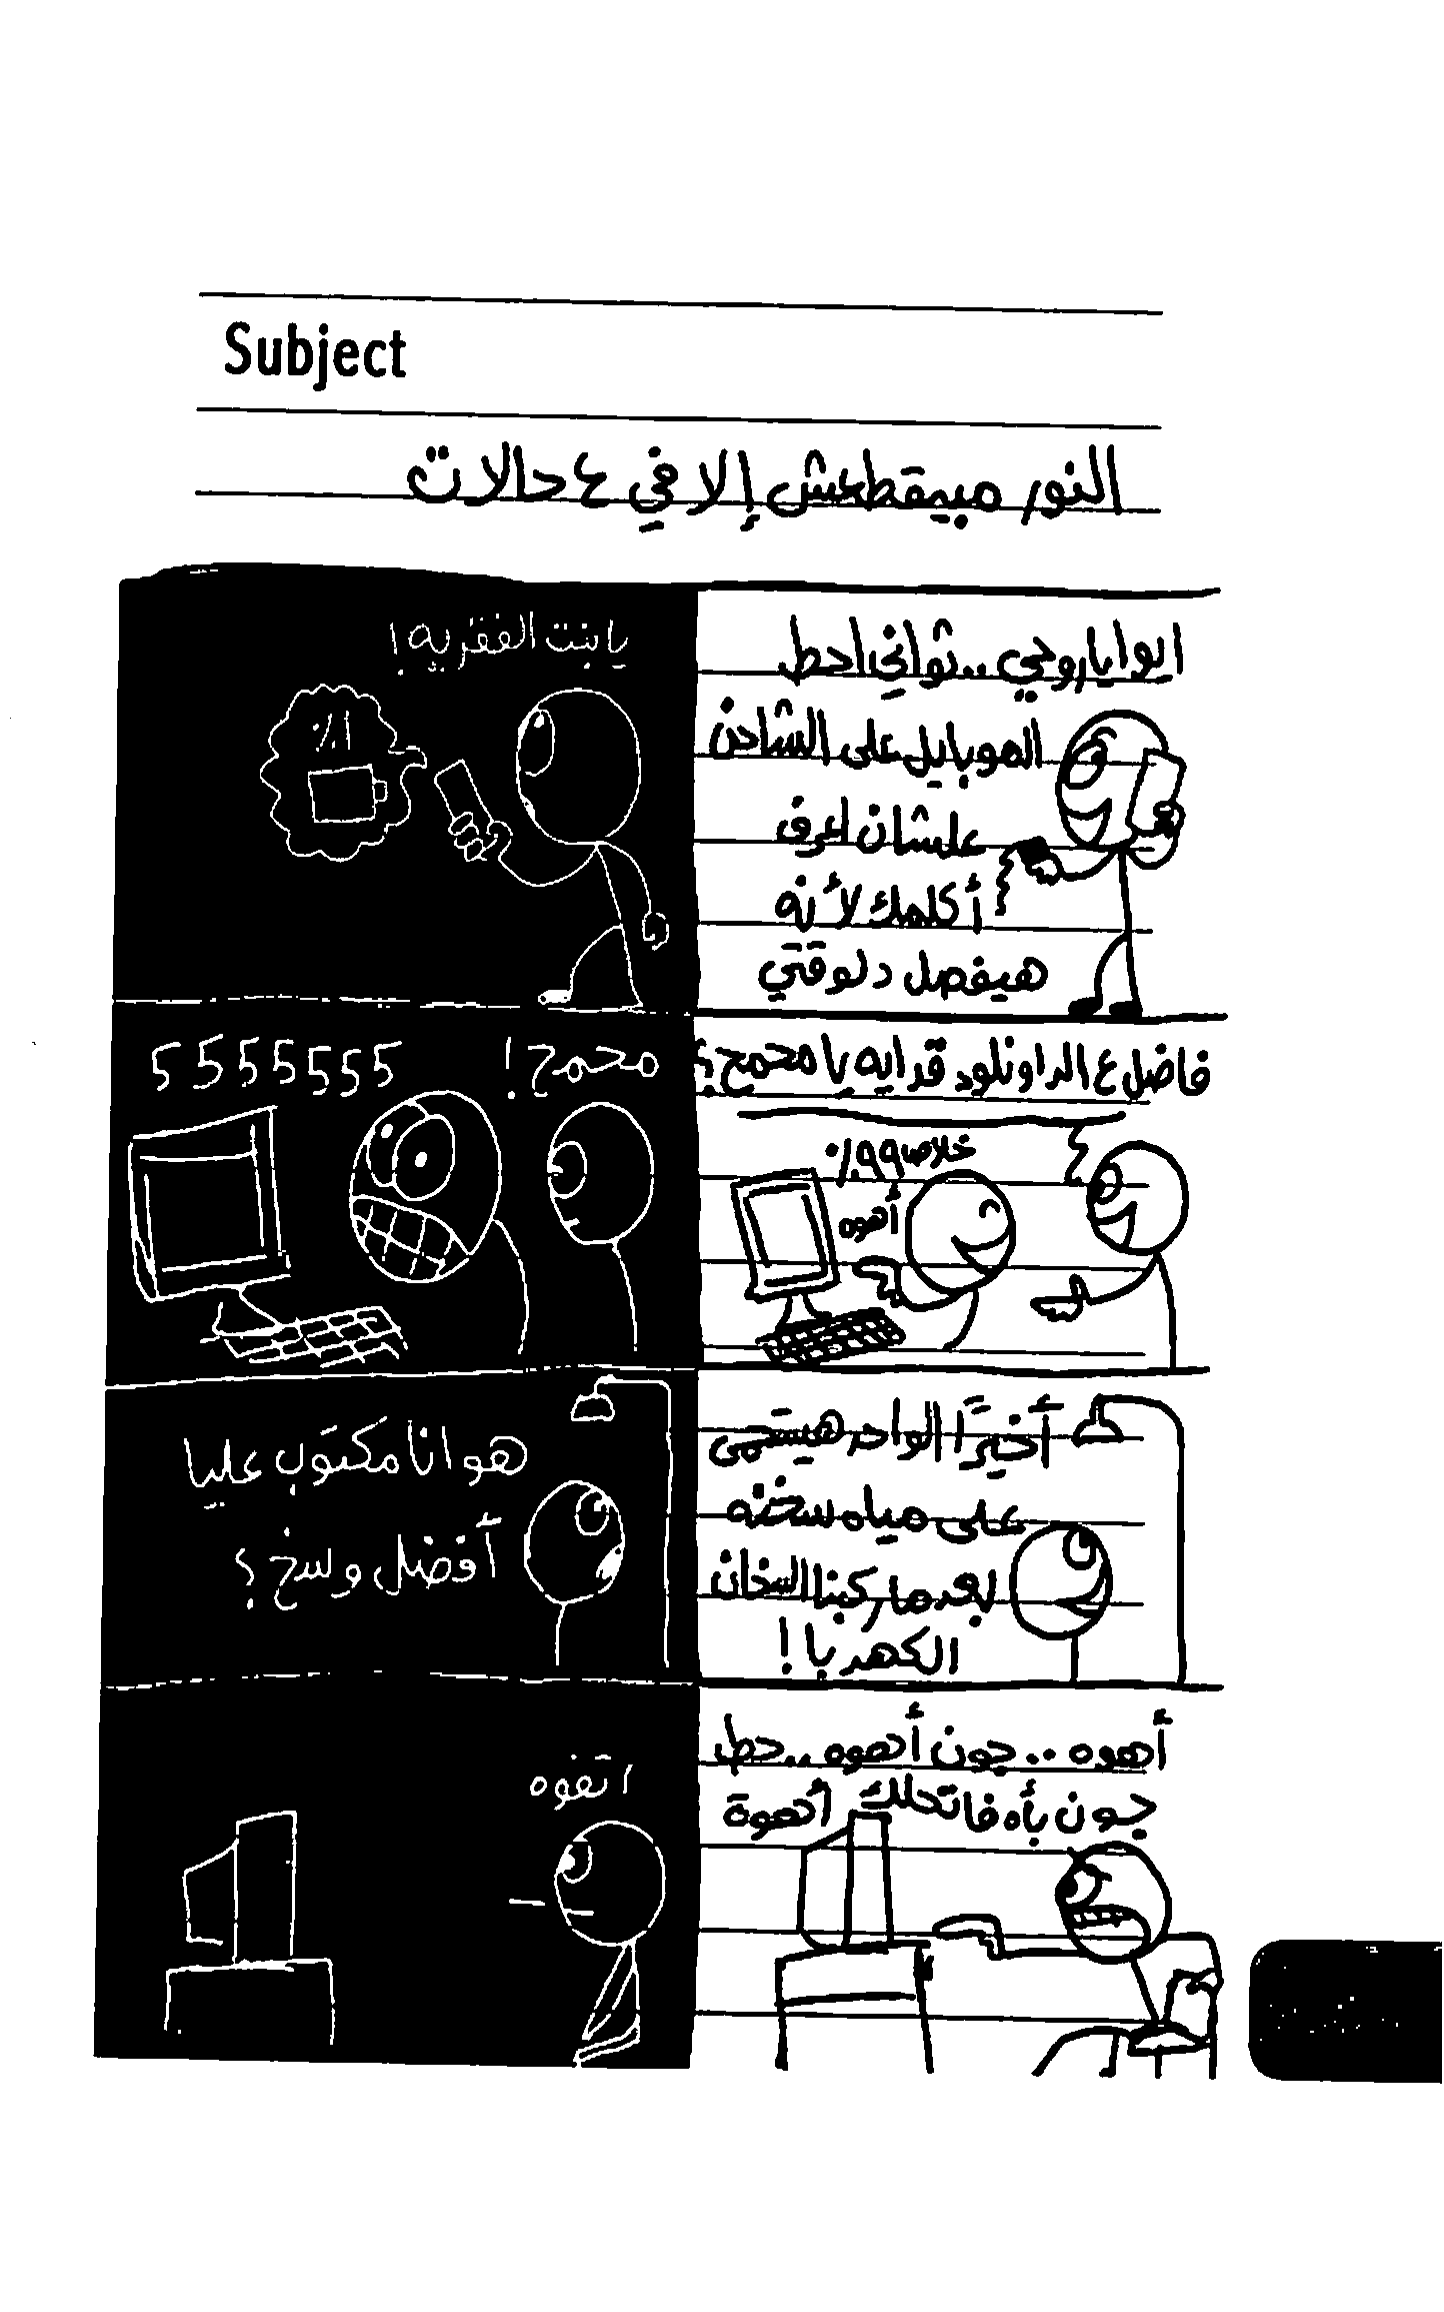 Subject
النور مبيقطعش إلا في ٤ حالات
ايوا ياروحي .. ثواني احط
الموبايل على الشاحن
علشان اعرف
أكلمك لأنه
هيفصل دلوقتي
يا بنت الفقريه!
١٪
فاضل ع الداونلود قد ايه يا محمح؟
خلاص ٩٩٪
أهوه
محمح!
5555555
أخيرًا الواحد هيستحمى
على مياه سخنه
بعد ما ركبنا السخان
الكهربا!
هو انا مكتوب عليا
أفضل وسخ؟
أهوه .. جون أهوه .. حط
جون بأه فاتحلك أهوة
اتفوه